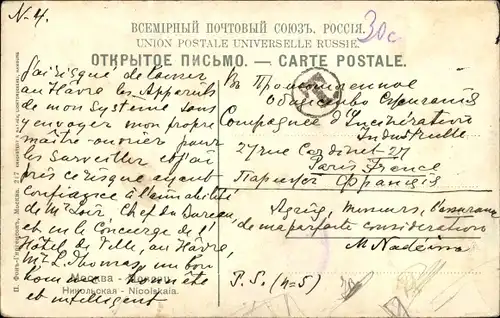 N-4.
30c
ВСЕМІРНЫЙ ПОЧТОВЫЙ СОЮЗЪ. РОССІЯ.
UNION POSTALE UNIVERSELLE RUSSIE.
ОТКРЫТОЕ ПИСЬМО. — CARTE POSTALE.
J'ai risqué de laisser
au Havre les Appareils
de mon Systeme sans
y envoyer mon propre
maître-ouvrier pour
les surveiller et j'ai
pris ce risque ayant
confiance à l'amabilité
de Mr Chef du Bureau,
et en le Concierge de l'
Hôtel de Ville, au Havre,
Mr L. Thomas, un bon
homme honnête
et intelligent
Въ Промышленное
Общество
Compagnie d'Incinération
Industrielle
27 rue Cardinet 27
Paris France
Парижъ
Agréez, l'assurance
de ma parfaite considération
M. Nadein
P.S. (4=5)
Москва - Moscou
Никольская - Nicolskaia.